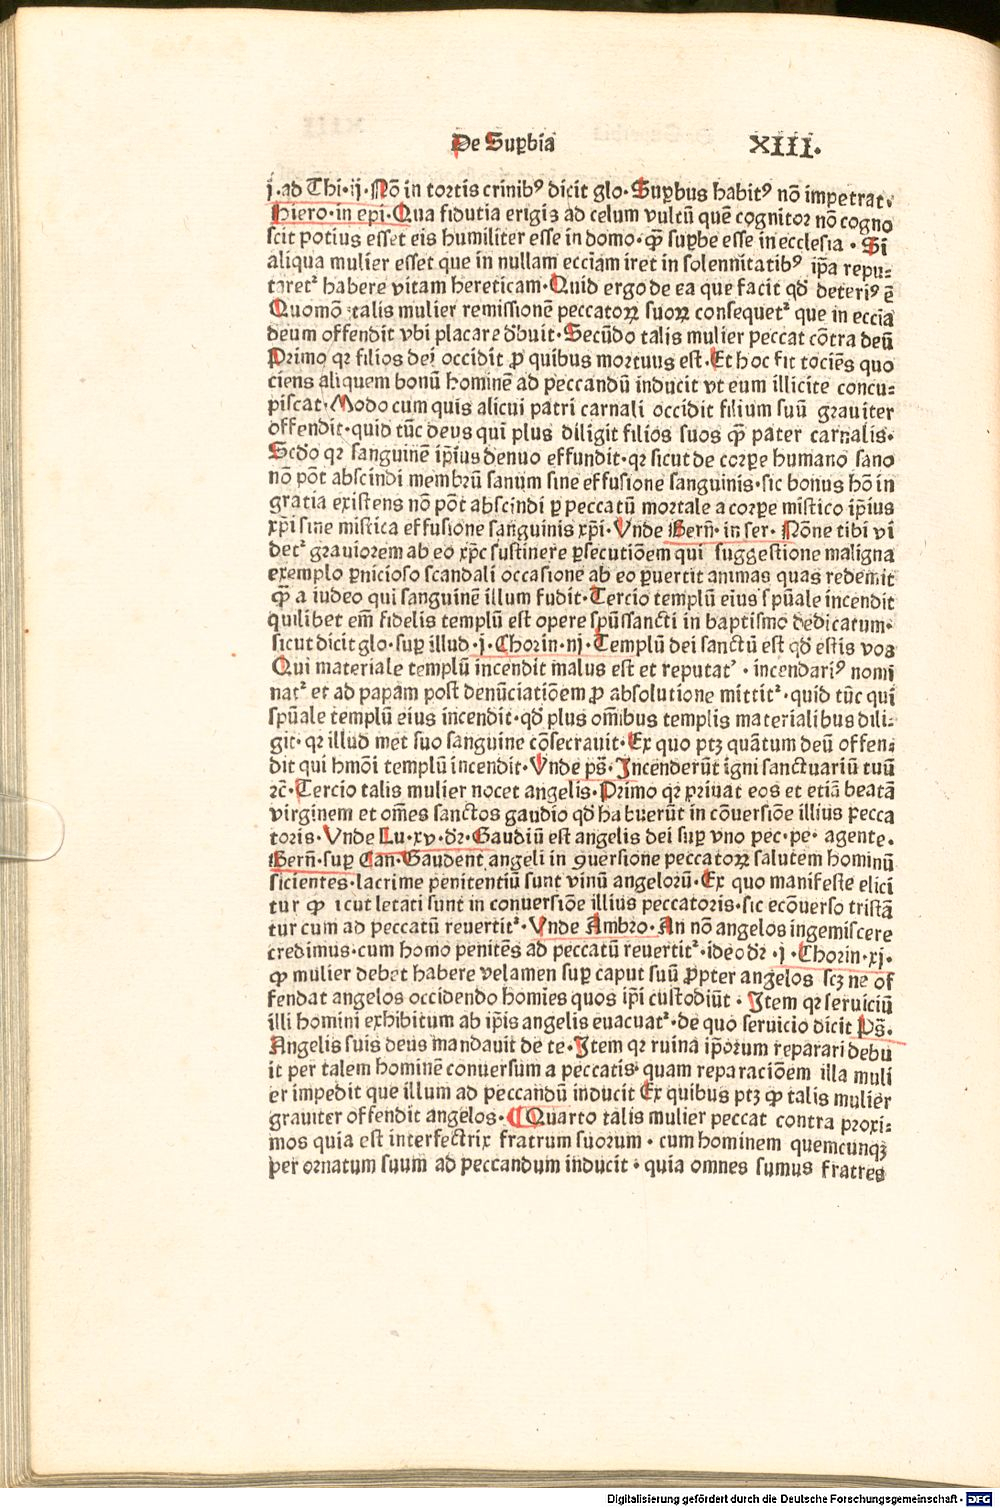 De Suꝑbia XIII.
j.ad Thi.ij.Nō in tortis crinibꝰ dicit glo.Suꝑbus habitꝰ nō impetrat.
Hiero.in epi.Qua fidutia erigis ad celum vultū quē cognitor nō cogno
scit potius esset eis humiliter esse in domo.ꝙ̄ suꝑbe esse in ecclesia . Si
aliqua mulier esset que in nullam eccīam iret in solennitatibꝰ ip̄a repu-
taretᷣ habere vitam hereticam.Quid ergo de ea que facit qd̄ deteriꝰ ē
Quomō talis mulier remissionē peccatoꝝ suoꝝ consequetᷣ que in eccīa
deum offendit vbi placare d̄buit.Secūdo talis mulier peccat cōtra deū
Primo qꝛ filios dei occidit ꝓ quibus mortuus est.Et hoc fit tociēs quo
ciens aliquem bonū hominē ad peccandū inducit vt eum illicite concu-
piscat.Modo cum quis alicui patri carnali occidit filium suū grauiter
offendit.quid tūc deus qui plus diligit filios suos ꝙ̄ pater carnalis.
Scd̄o qꝛ sanguinē ip̄ius denuo effundit.qꝛ sicut de corpe humano sano
nō pōt abscindi membrū sanum sine effusione sanguinis.sic bonus hō in
gratia existens nō pōt abscindi ꝑ peccatū mortale a corpe mistico ip̄ius
xp̄i sine mistica effusione sanguinis xp̄i.Vnde Bern̄.in ser. Nōne tibi vi
detᷣ grauiorem ab eo xp̄c sustinere ꝑsecutiōem qui suggestione maligna
exemplo ꝑnicioso scandali occasione ab eo ꝑuertit animas quas redemit
ꝙ̄ a iudeo qui sanguinē illum fudit.Tercio templū eius sp̄uale incendit
quilibet em̄ fidelis templū est opere sp̄ussancti in baptismo dedicatum.
sicut dicit glo.suꝑ illud .j.Chorin.iij.Templū dei sanctū est qd̄ estis vos
Qui materiale templū incendit malus est et reputatᷣ . incendariꝰ nomi
natᷣ et ad papam post denūciatiōem ꝓ absolutione mittitᷣ.quid tūc qui
sp̄uale templū eius incendit.qd̄ plus om̄ibus templis materialibus dili-
git.qꝛ illud met suo sanguine cōsecrauit.Ex quo ptꝫ quātum deū offen-
dit qui hmōi templū incendit.Vnde ps̄.Incenderūt igni sanctuariū tuū
ꝛc̄.Tercio talis mulier nocet angelis.Primo qꝛ priuat eos et etiā beatā
virginem et om̄es sanctos gaudio qd̄ habuerūt in cōuersiōe illius pecca
toris.Vnde Lu.xv.dꝛ.Gaudiū est angelis dei suꝑ vno pec.pe. agente.
Bern̄.suꝑ Can.Gaudent angeli in ꝯuersione peccatoꝝ salutem hominū
sicientes.lacrime penitentiū sunt vinū angelorū.Ex quo manifeste elici
tur ꝙ icut letati sunt in conuersiōe illius peccatoris.sic ecōuerso tristā
tur cum ad peccatū reuertitᷣ.Vnde Ambro.An nō angelos ingemiscere
credimus.cum homo penitēs ad peccatū reuertitᷣ.ideo dꝛ .j.Chorin.xj.
ꝙ mulier debet habere velamen suꝑ caput suū ꝓpter angelos scꝫ ne of
fendat angelos occidendo homīes quos ip̄i custodiūt . Item qꝛ seruiciū
illi homini exhibitum ab ip̄is angelis euacuatᷣ.de quo seruicio dicit Ps̄.
Angelis suis deus mandauit de te.Item qꝛ ruina ip̄orum reparari debu
it per talem hominē conuersum a peccatis.quam reparaciōem illa muli
er impedit que illum ad peccandū inducit Ex quibus ptꝫ ꝙ talis mulier
grauiter offendit angelos.¶ Quarto talis mulier peccat contra proxi-
mos quia est interfectrix fratrum suorum . cum hominem quemcunqꝫ
per ornatum suum ad peccandum inducit . quia omnes sumus fratres
Digitalisierung gefördert durch die Deutsche Forschungsgemeinschaft - DFG